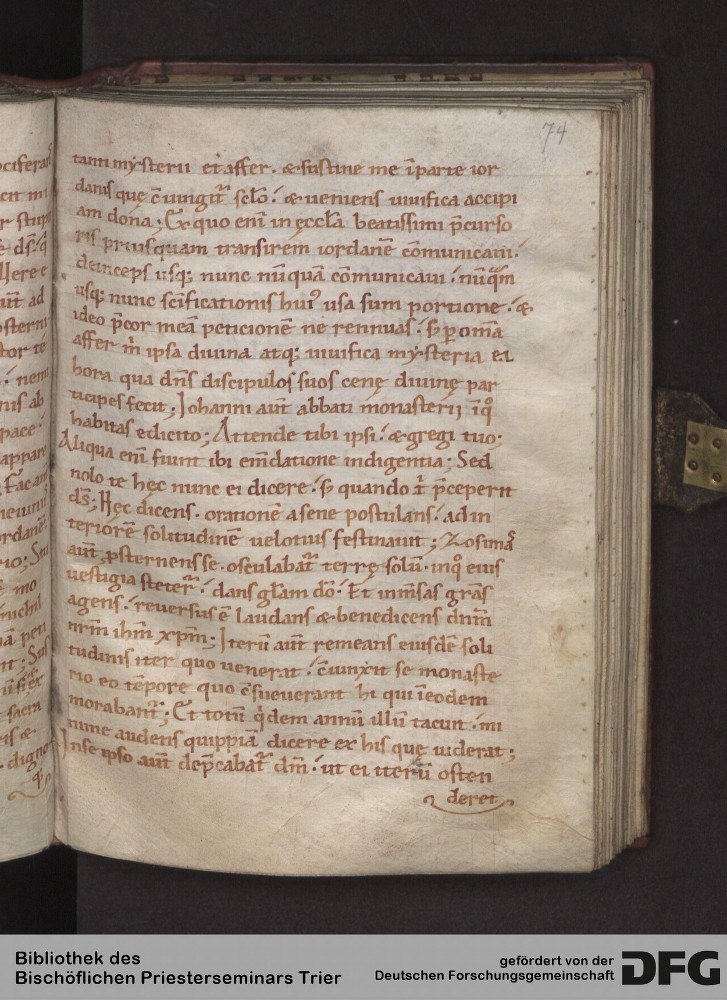 74
tanti mẏsterii et affer. & sustine me īparte ior
danis quę c̄iungit᷑ sc̄lo. & ueniens uiuifica accipi
am dona; Ex quo eni ̄ in ęccl̄a beatissimi p̄curso
ris priusquam transirem iordanē cōmunicaui.
deinceps usq; nunc nūquā cōmunicaui. nūq̄m
usq; nunc sc̄ificationis huiꝰ usa sum portione. &
ideo p̄cor meā peticionē ne rennuas. s; ꝑ omīa
affer m̄ ipsa diuina atq; uiuifica mẏsteria ea
hora qua dn̄s discipulos suos cenę diuinę par
ticipes fecit; Iohanni aut̄ abbati monasterii īqͦ
habitas edicito; Attende tibi ipsi. & gregi tuo;
Aliqua eni ̄ fiunt ibi em̄datione indigentia; Sed
nolo te hęc nunc ei dicere. s; quando t̄ p̄ceperit
ds̄; Hęc dicens. orationē a sene postulans. ad in
teriorē solitudinē uelotius festinauit; Zosimas
aut̄ ꝓsternens se. osculabat᷑ terrę solū. inqͦ eius
uestigia steter̄. dans gl̄am dō. Et inm̄sas grās
agens. reuersus ē laudans & benedicens dn̄m
nr̄m ihm̄ xpm̄; Iterū aut̄ remeans eiusdē soli
tudinis iter quo uenerat. c̄iunxit se monaste
rio eo tēpore quo c̄sueuerant hi qui ieodem
morabant᷑; Et totū q̇dem annū illū tacuit. mi
nime audens quippiā dicere ex his quę uiderat;
Inse ipso aut̄ dep̄cabat᷑ dm̄. ut ei iterū osten
deret
Bibliothek des
Bischöflichen Priesterseminars Trier
gefördert von der
Deutschen Forschungsgemeinschaft
DFG